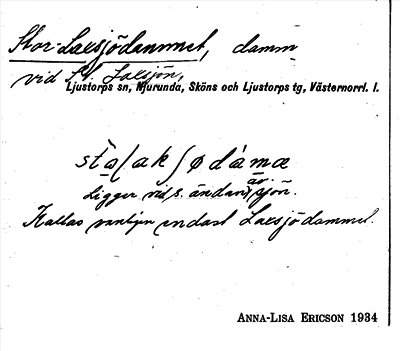 Stor-Laxsjödammet, damm
vid St. Laxsjön,
Ljustorps sn, Njurunda, Sköns och Ljustorps tg, Västernorrl. l.
Ligger vid s. ändan av sjön.
Kallas vanligen endast Laxsjödammet.
ANNA-LISA ERICSON 1934